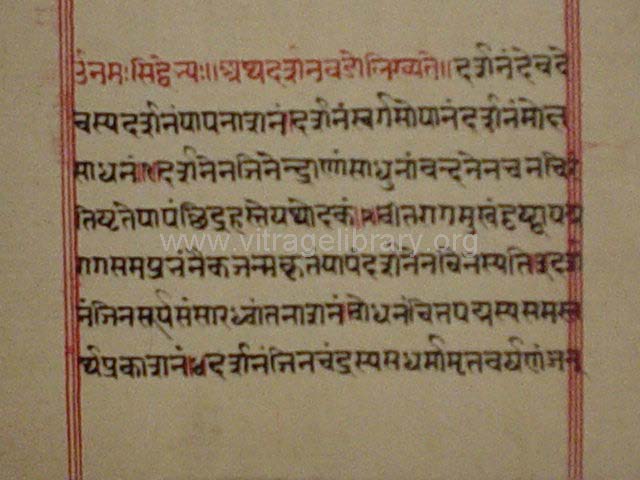 उँनमःसिद्धेभ्यः॥अथदर्शनवडोलिख्यते॥दर्शनंदेवदे
वस्यदर्शनंपापनाशनं।दर्शनंस्वर्गसोपानंदर्शनंमोक्ष
साधनं॥१॥दर्शनेनजिनेन्द्राणंसाधुनांवन्दनेनचनचिरं
तिष्टतेपापंछिद्रहस्तेयथोदकं॥२॥वीतरागमुखंदृष्ट्वापद्म
रागसमप्रभंनैकजन्मकृतंपापंदर्शनेनविनस्यति॥३॥दर्श
नंजिनसूर्यसंसारध्वांतनाशनंबोधनंचितपद्मस्यसमस्ता
र्थप्रकाशनं॥४॥दर्शनंजिनचंद्रस्यसधर्मामृतवर्षणंजन्म
www.vitragelibrary.org